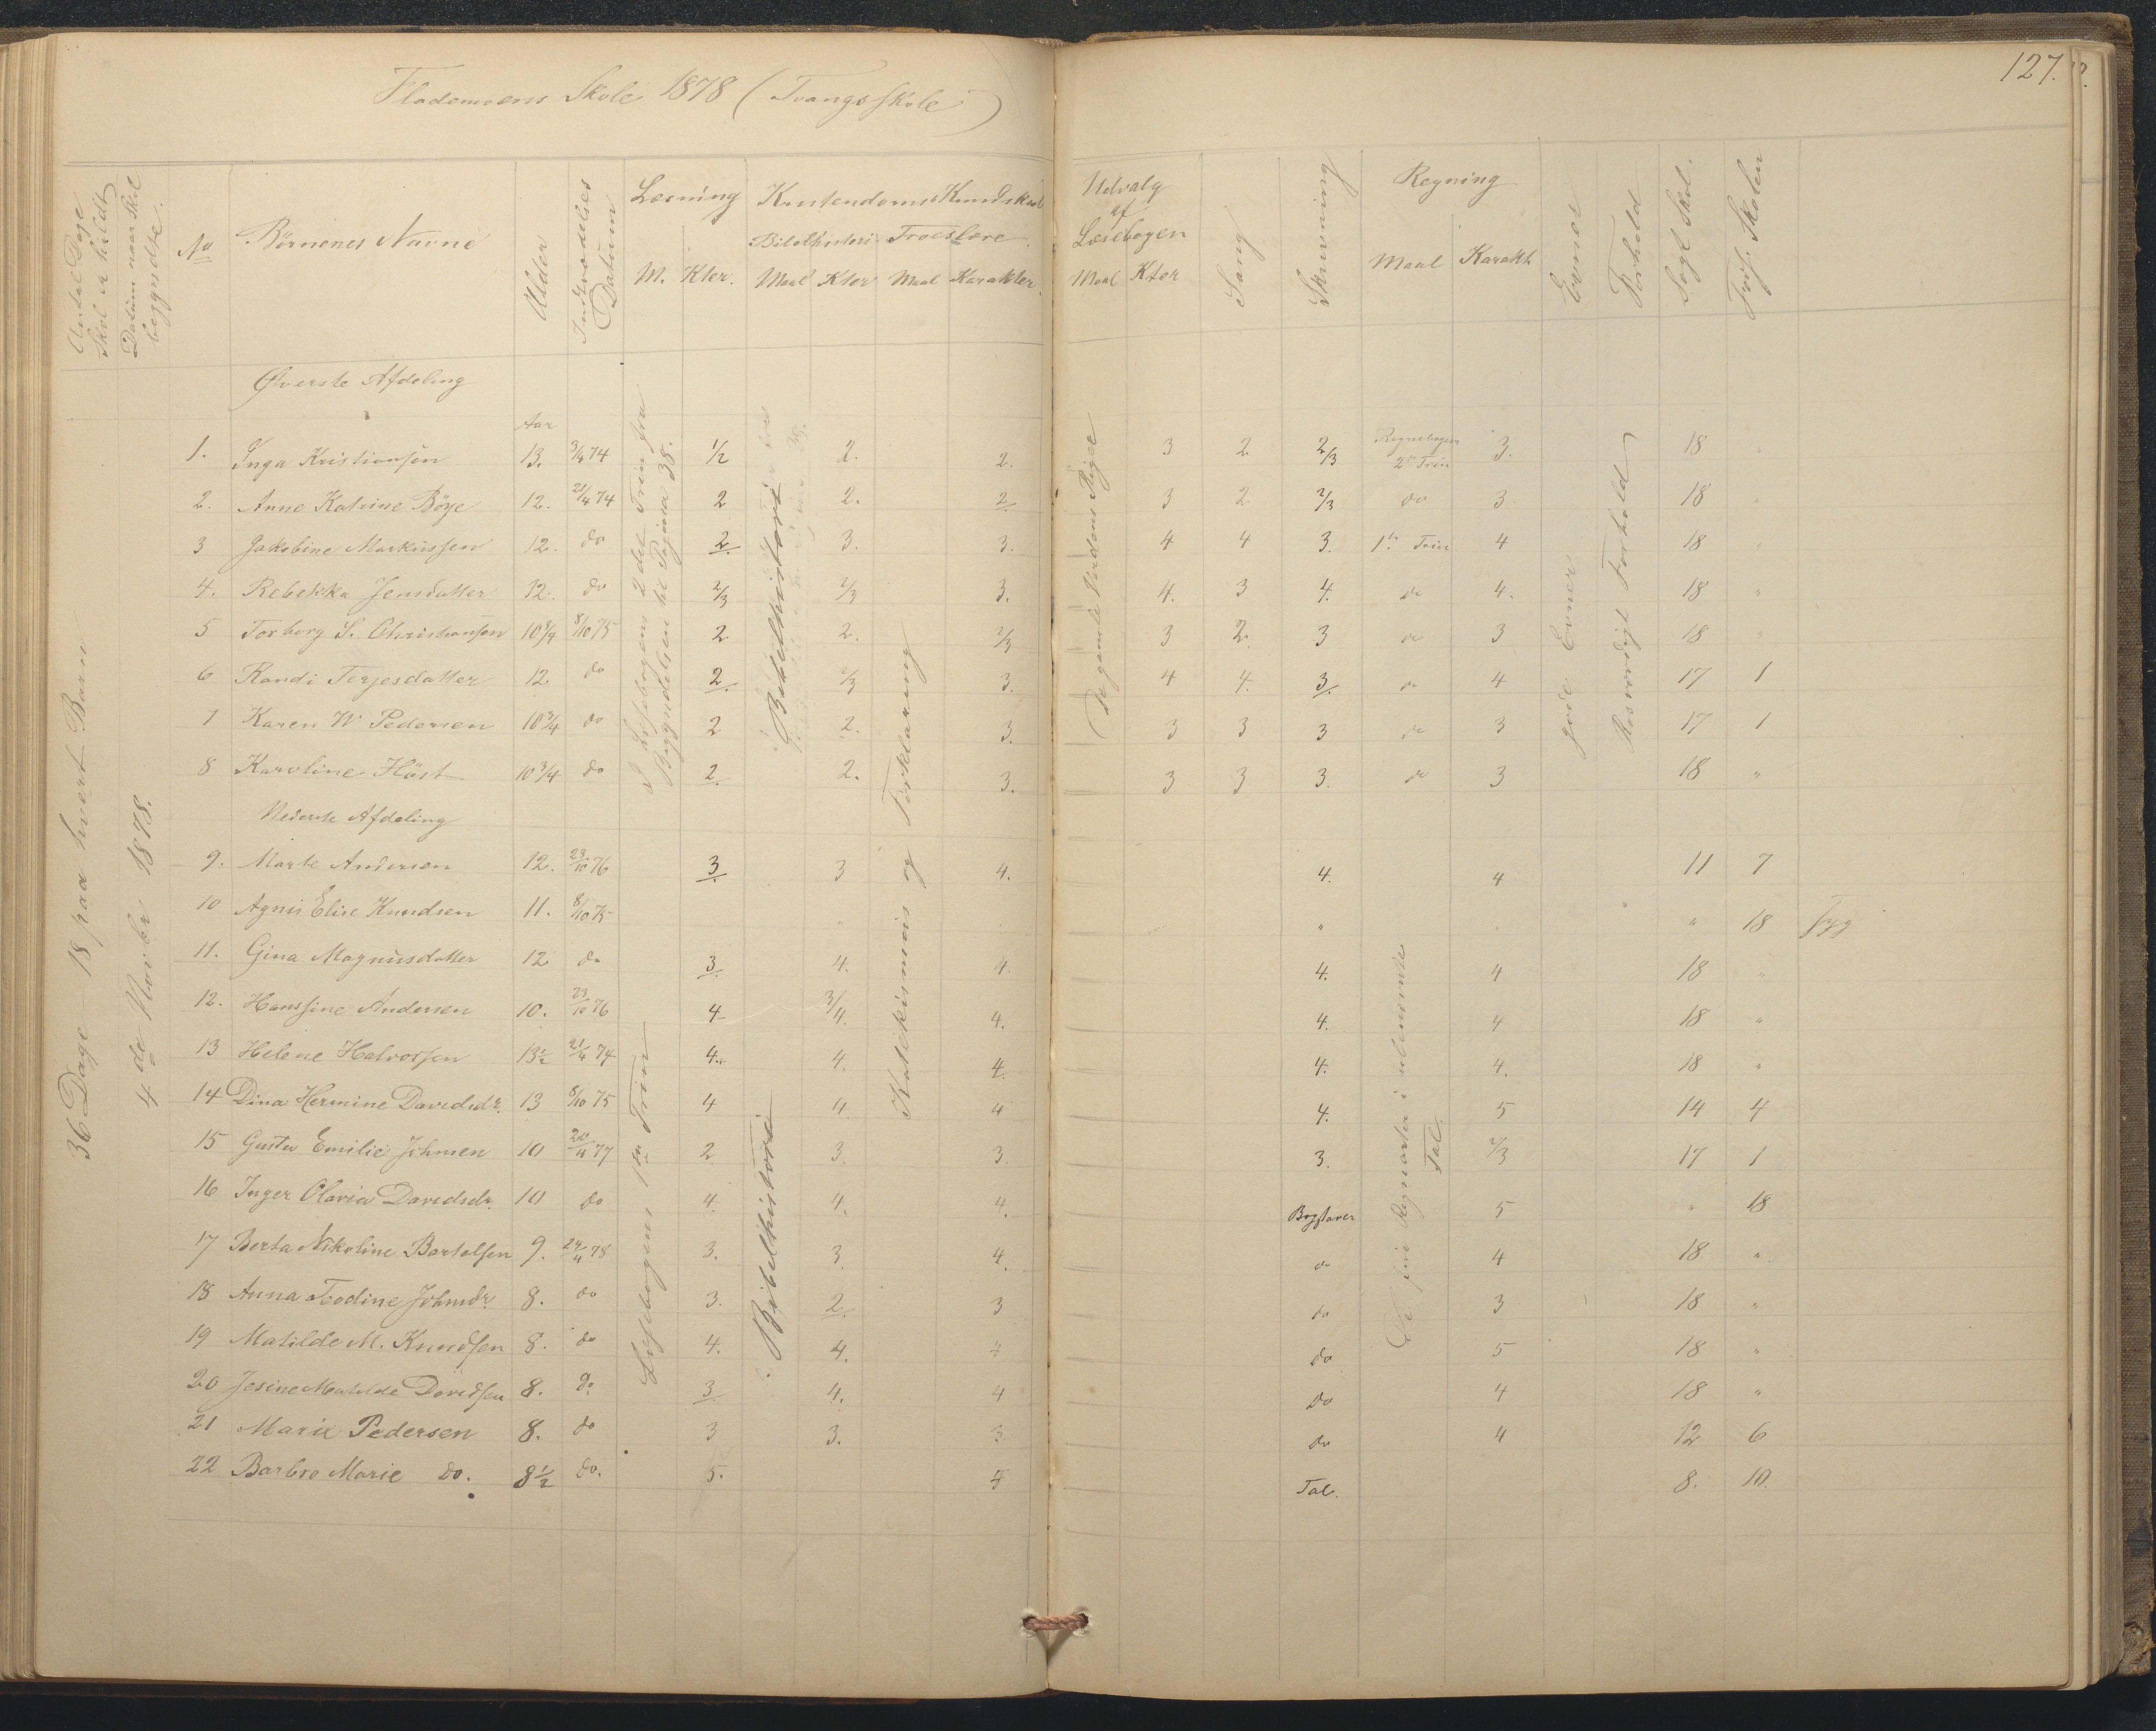 127.
Flademoens Skole 1878 (Tvangsskole)
Antal Dage Skol er holdt
Datum naar Skol begyndte.
No
Børnenes Navne
Alder
Indtrædelses Datum
Læsning
M. Kter.
Kristendoms Kundskab
Bibelhistori Troeslære.
Maal Kter Maal Karakter.
Udvalg af Læsebogen
Maal Kter
Sang
Skrivning
Regning
Maal Karakt
Evner
Forhold
Søgt Skol.
Forsj. Skolen
36 Dage 18 paa hvert Barn
4de Novbr 1878.
Øverste Afdeling
Aar
1. Inga Kristiansen 13. 3/4 74 1/2 2. 2. 3 2 2/3 Regnebogens 2det Trin 3. 18 "
2. Anne Katrine Böye 12. 21/4 74 2 2. 2. 3 2 2/3 do 3. 18 "
3 Jakobine Markussen 12. do 2. 3. 3. 4 4 3. 1ste Trin 4 18 "
4. Rebekka Jensdatter 12. do 2/3 2/3 3. 4. 3 4. do 4. 18 "
5 Torborg S. Christiansen 10 3/4 8/10 75 2 2. 2/3 3 2. 3 do 3 18 "
6 Randi Terjesdatter 12 do 2. 2/3 3. 4 4. 3. do 4 17 1
7 Karen W Pedersen 10 3/4 do 2 2. 3. 3 3 3 do 3 17 1
8 Karoline Höst 10 3/4 do 2. 2. 3. 3 3 3. do 3 18 "
I Læsebogens 2det Trin fra Begyndelsen til Pagina 38.
Bibelhistori
Katekismus og Forklaring
De gamle Verdens Riger
gode Evner
Rosværdigt Forhold
Nederste Afdeling
9. Marte Andersen 12. 23/10 76 3. 3 4. 4. 4 11 7
10 Agnis Elise Knudsen 11. 8/10 75 " " 18 syg
11. Gina Magnusdatter 12 do 3. 4. 4. 4. 4 18 "
12. Hanssine Andersen 10. 23/10 76 4 3/4. 4. 4. 4 18 "
13 Helene Halvorsen 13 1/2 21/4 74 4. 4. 4. 4. 4. 18 "
14 Dina Hermine Davidsdr. 13 8/10 75 4 4. 4 4. 5 14 4
15 Gusta Emilie Johnsen 10 20/4 77 2 3. 3. 3. 2/3 17 1
16 Inger Olavia Davidsdr. 10 do 4. 4. 4. Bogstaver 5 " 18
17 Berta Nikoline Bertelsen 9. 24/4 78 3. 3. 4. do 4 18 "
18 Anna Teodine Johnsdr. 8. do 3. 2. 3 do 3 18 "
19 Matilde M. Knudsen 8. do 4. 4. 4 do 5 18 "
20 Jesine Matilde Davidsen 8. do 3. 4. 4 do 4 18 "
21 Marie Pedersen 8. do 3 3. 3 do 4 12 6
22 Barbro Marie do. 8 1/2 do. 5. 5 Tal. 8. 10.
Læsebogens 1ste Trin
Bibelhistori
De fire Regnarter i ubenævnte Tal.